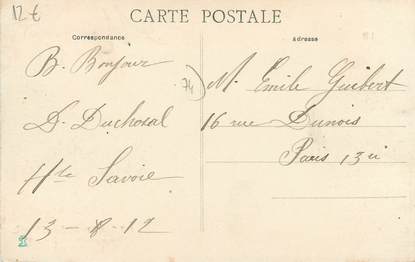 12€
CARTE POSTALE
Correspondance
Adresse
B. Bonjour
D. Duchosal
Hte Savoie
13-8-12
74
M. Emile Guibert
16 rue Dunois
Paris 13e